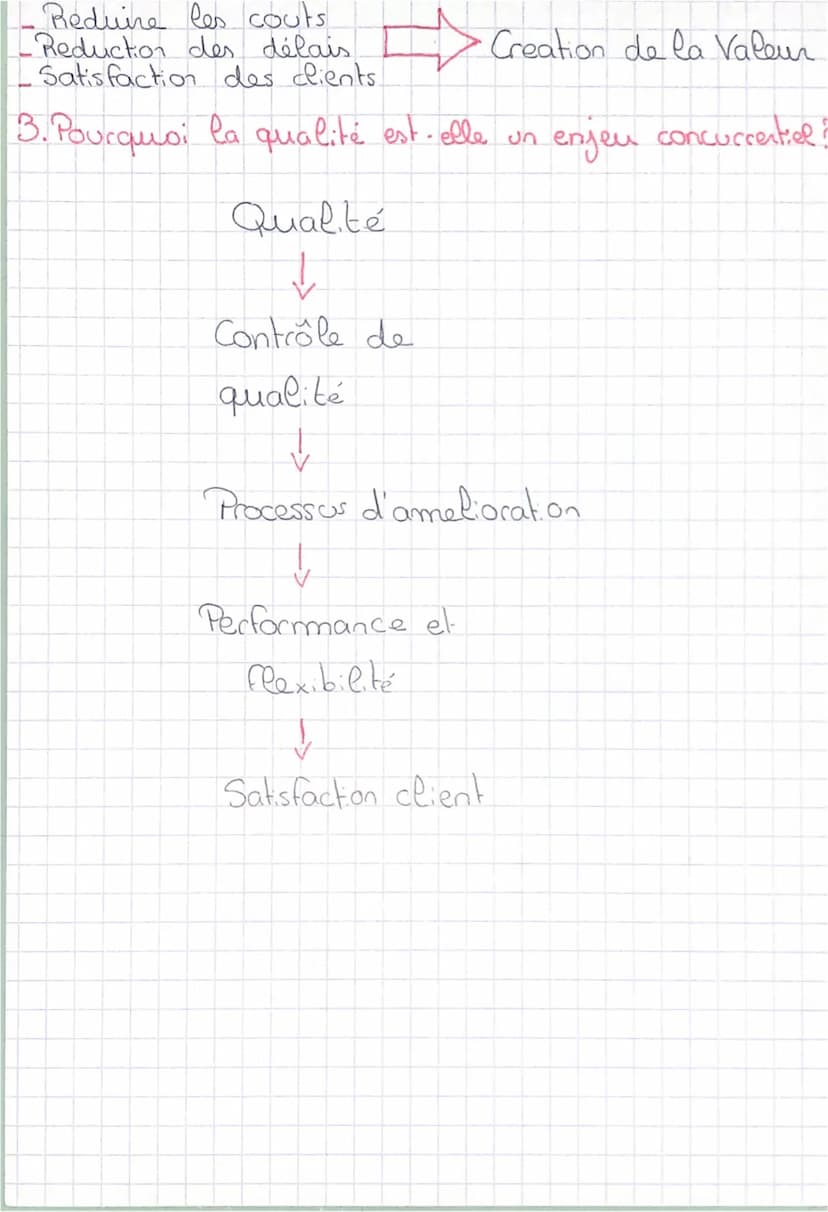 - Reduire les couts
- Reduction des délais
- Satisfaction des clients
Creation de la Valeur
3. Pourquoi la qualité est-elle un enjeu concurrentiel?
Qualité
Contrôle de
qualité
Processus d'amelioration
Performance et
flexibilité
Satisfaction client